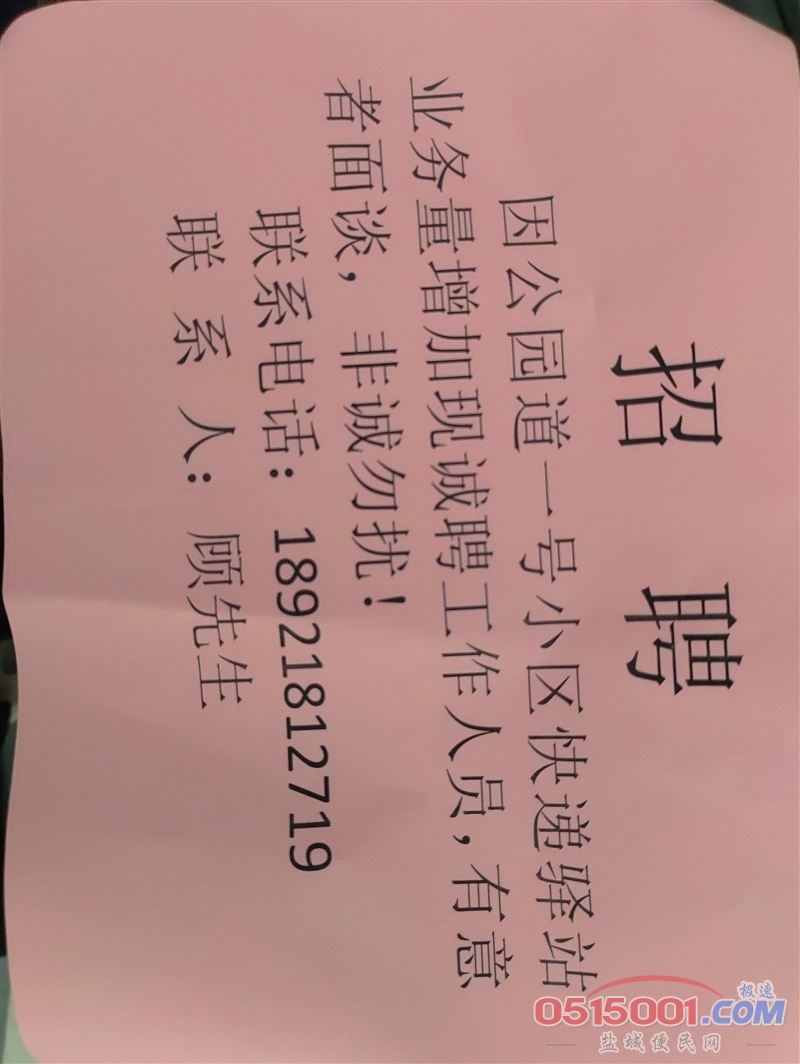 招 聘
因公园道一号小区快递驿站
业务量增加现诚聘工作人员,有意
者面谈，非诚勿扰！
联系电话：18921812719
联 系 人：顾先生
极速
0515001.COM
盐城便民网